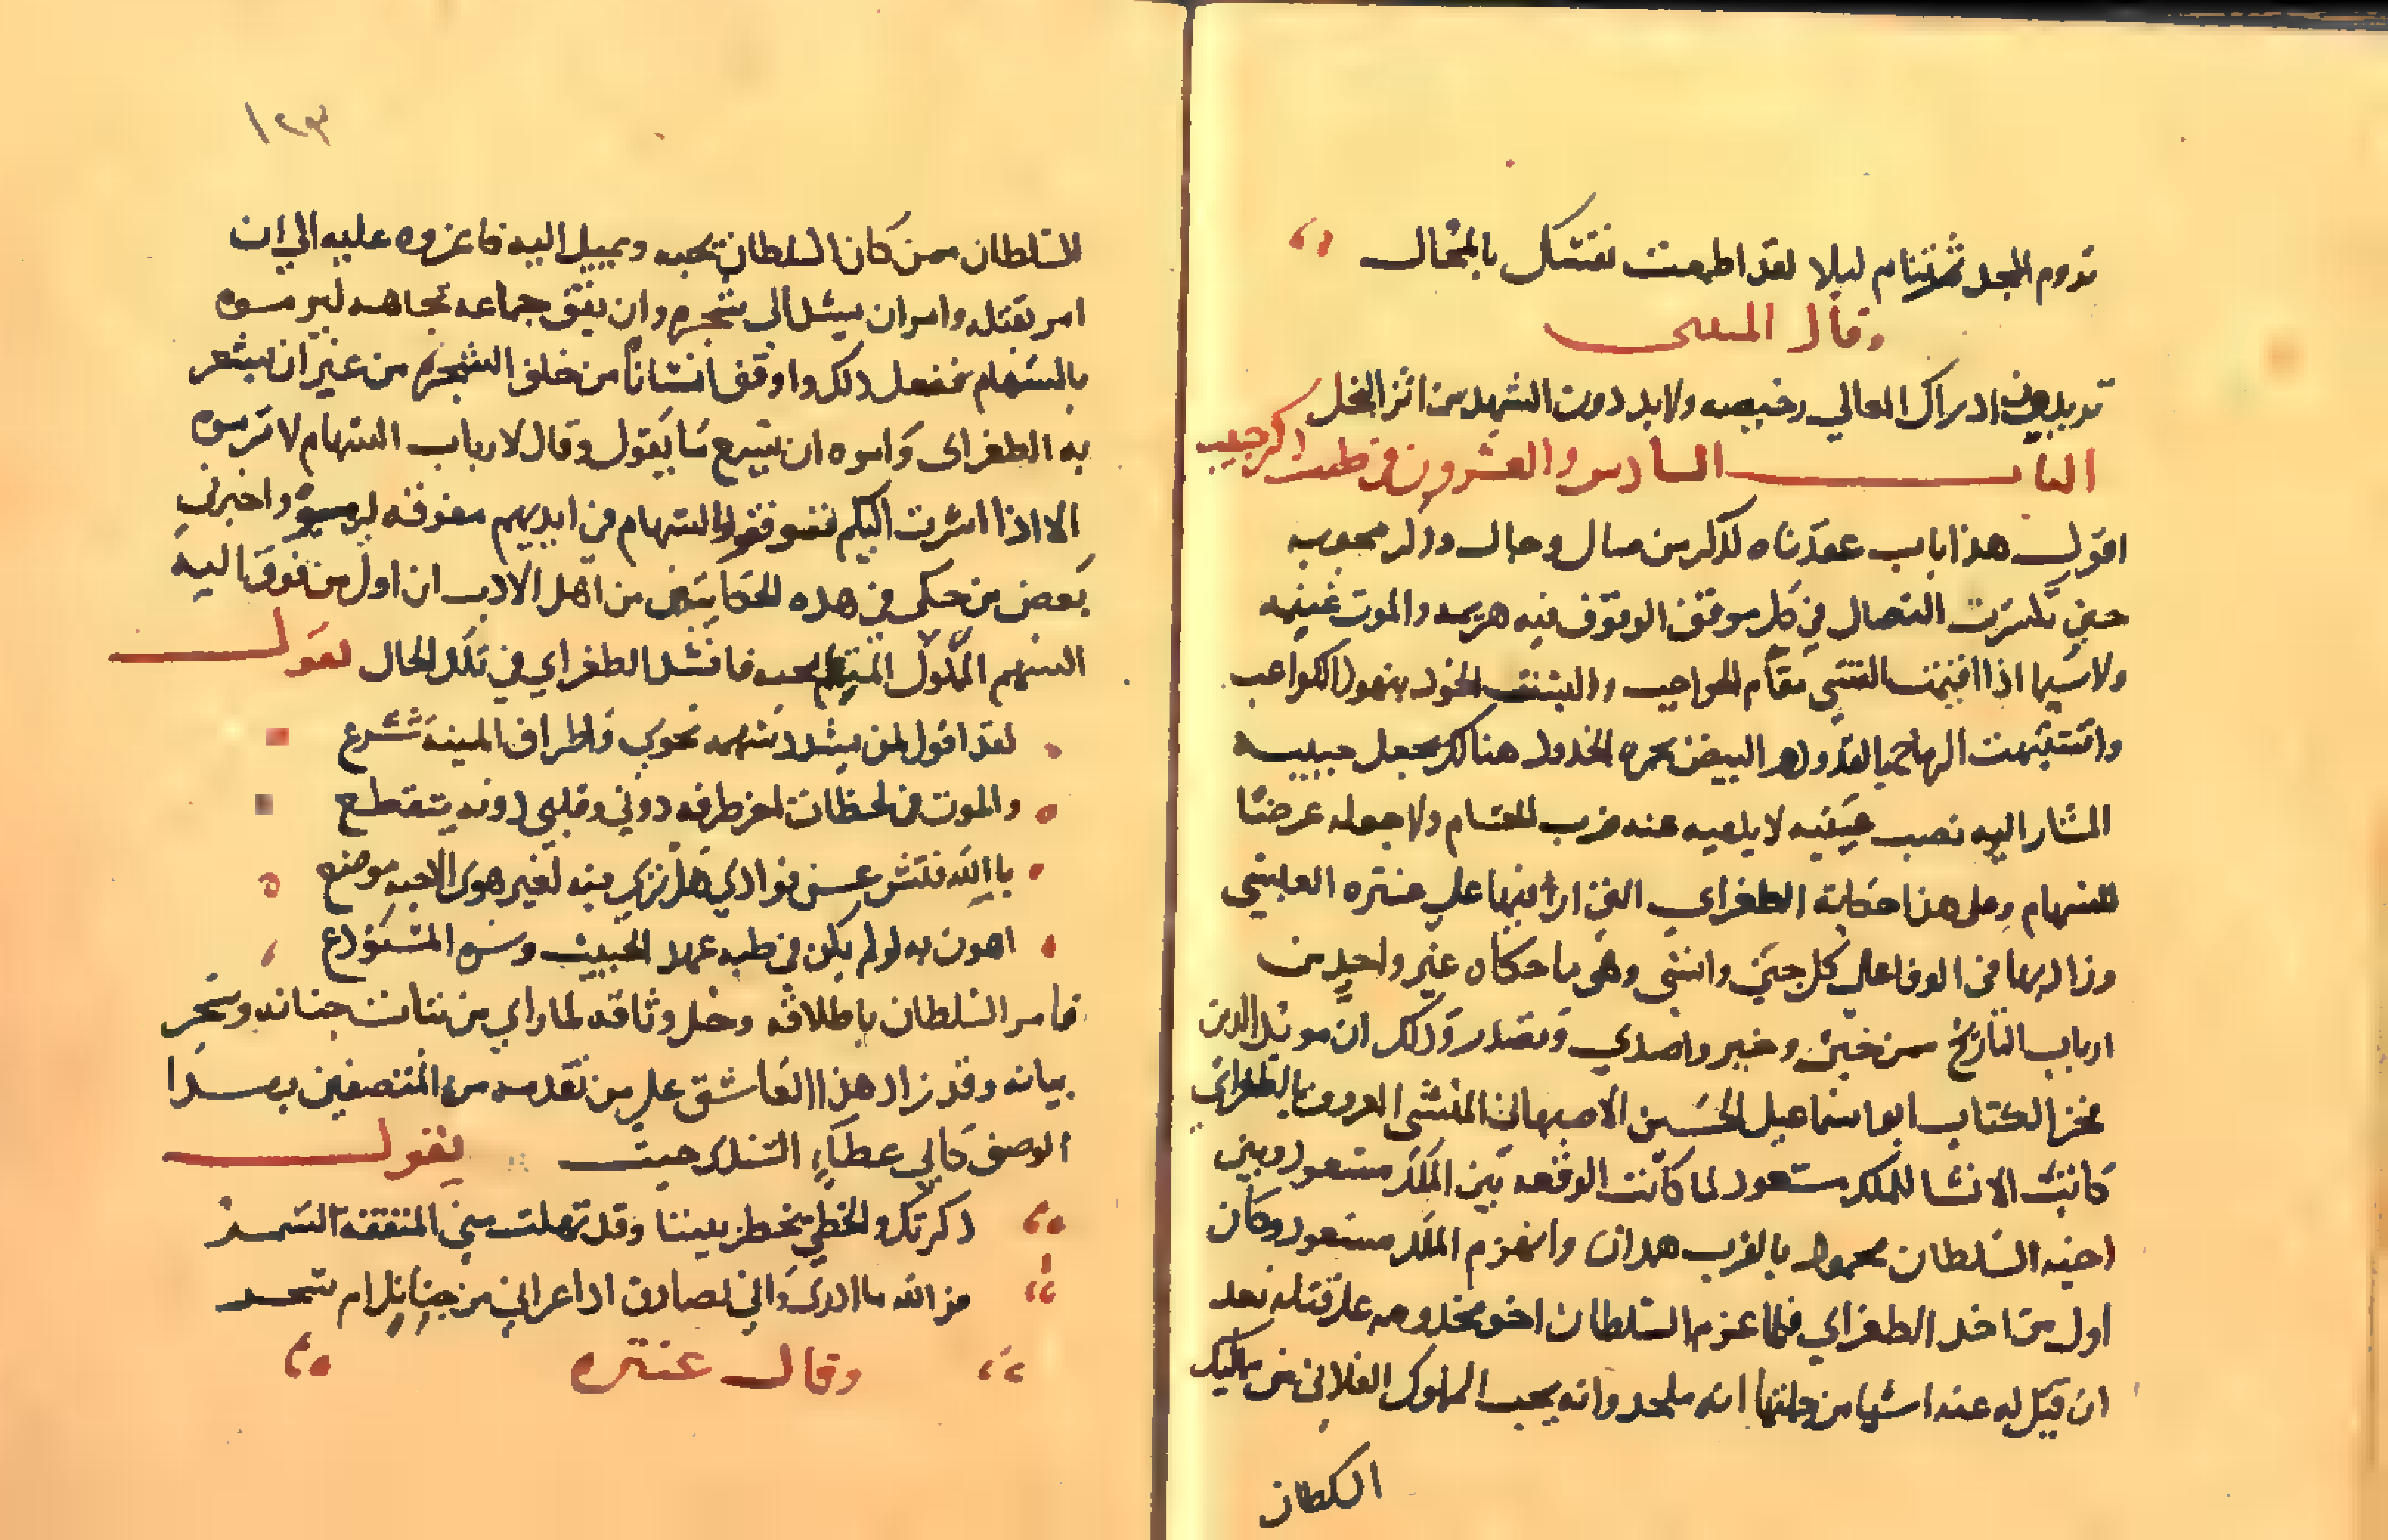 تروم المجد ثم تنام ليلا لقد اطمعت نفسك بالمحال
وقال المتنبى
تريدين ادراك المعالي رخيصه ولابد دون الشهد من ابر النحل
الباب السادس والعشرون في طيب ذكر حبيب
اقول هذا باب عقدناه لذكر من صال وجال وذكر محبوبه
حين تكسرت النصال في كل موقف الوقوف فيه هزيمه والموت غنيمه
ولاسيما اذا اقيمت القسي مقام الحواجب والبيض الخود بنهود الكواعب
واشتبهت الرماح بالقدود والبيض بحمره الخدود هنالك يجعل حبيبه
المشار اليه نصب عينيه لا يلهيه عنه ضرب الحسام ولا جعله عرضا
للسهام وعلى هذا حكاية الطغراي التي اربا فيها علي عنتره العبسي
وزاد بها في الوفا على كل جني وانسي وهي ما حكاه غير واحد من
ارباب التاريخ ممن خبر وخبر واصدي وتصدر وذلك ان مويد الدين
فخر الكتاب ابو اسماعيل الحسين الاصبهاني المنشى المعروف بالطغراي
كاتب الانشا للملك مسعود لما كانت الوقعه بين الملك مسعود وبين
اخيه السلطان محمود بالقرب همدان وانهزم الملك مسعود وكان
اول من اخذ الطغراي فلما عزم السلطان اخو مخدومه على قتله بعد
ان قيل له عنه اشيا من جملتها انه ملحد وانه يحب المملوك الفلاني من مماليك
السلطان
١٢٣
السلطان ممن كان السلطان يحبه ويميل اليه فاغروه عليه الي ان
امر بقتله وامر ان يشد الى شجره وان يقف جماعه تجاهه ليرموه
بالسهام ففعل ذلك واوقف انسانا من خلف الشجره من غير ان يشعر
به الطغراى وامره ان يسمع ما يقول وقال لارباب السهام لا ترموه
الا اذا اشرت اليكم فوقفوا والسهام في ايديهم مفوقه لرميه واخبرني
بعض من حكى في هذه الحكاية من اهل الادب ان اول من فوق اليه
السهم المملوك المتهم بحبه فانشد الطغراي في تلك الحال يقول
لقد اقول لمن يسدد سهمه نحوي واطراف المنيه شرع
والموت في لحظات اخر طرفه دوني وقلبي دونه يتقطع
بالله فتش عن فوادي هل ترى فيه لغير هوى الاحبه موضع
اهون به لو لم يكن في طيه عهد الحبيب وسره المستودع
فامر السلطان باطلاقه وحل وثاقه لما راي من ثبات جنانه وسحر
بيانه وقد زاد هذا العاشق علي من تقدمه من المتصفين بهذا
الوصف كابي عطاء السندي حيث يقول
ذكرتك والخطي يخطر بيننا وقد نهلت مني المثقفه السمر
فوالله ما ادرى واني لصادق اداء عراني من جنابك ام سحر
وقال عنتره